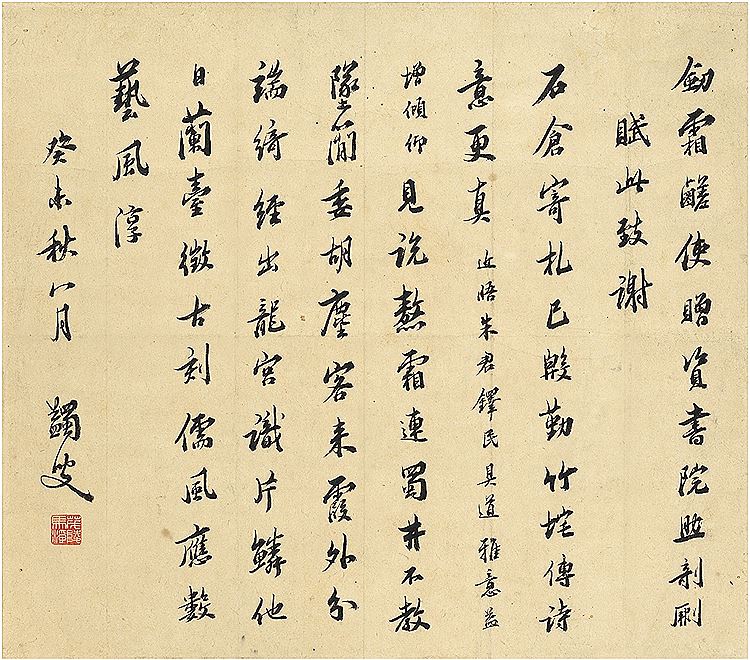 劒霜鹺使贈資書院剞劂
賦此致謝
石倉寄札已殷勤竹垞傳詩
意更真 近晤朱君鐸民具道雅意益
增傾仰 見說熬霜連蜀井不教
墜簡委胡塵客来霞外分
端綺經出龍宮識片鱗他
日蘭臺徵古刻儒風應數
藝風淳
癸未秋八月 蠲叟